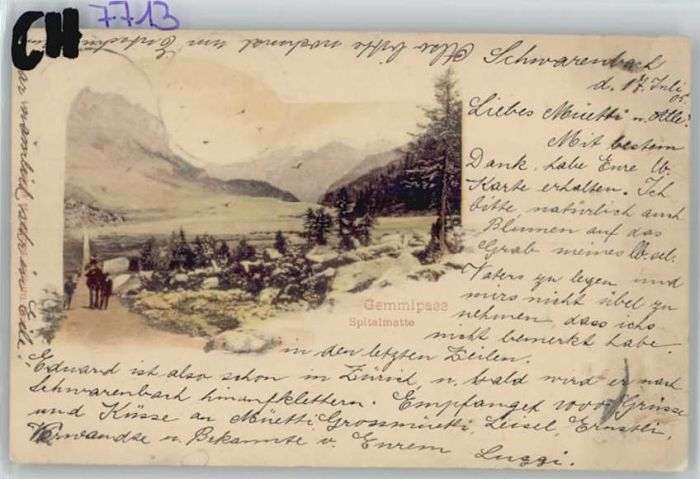 CH 7713
Schwarenbach
d. 17. Juli
Liebes Müetti u. Alle!
Mit bestem
Dank, habe Eure W.
Karte erhalten. Ich
bitte, natürlich auch
Blumen auf das
Grab meines l. sel.
Vaters zu legen, und
mirs nicht übel zu
nehmen, dass ichs
nicht bemerkt habe
in den letzten Zeilen.
Gemmipass
Spitalmatte
Eduard ist also schon in Zürich, u. bald wird er nach
Schwarenbach hinaufklettern. Empfanget 1000 Grüsse
und Küsse an Müetti, Grossmüetti, Leisel, Ernstli,
Verwandte u. Bekannte v. Eurem Luggi.
Also bitte nochmal um
war nämlich, in Eile.